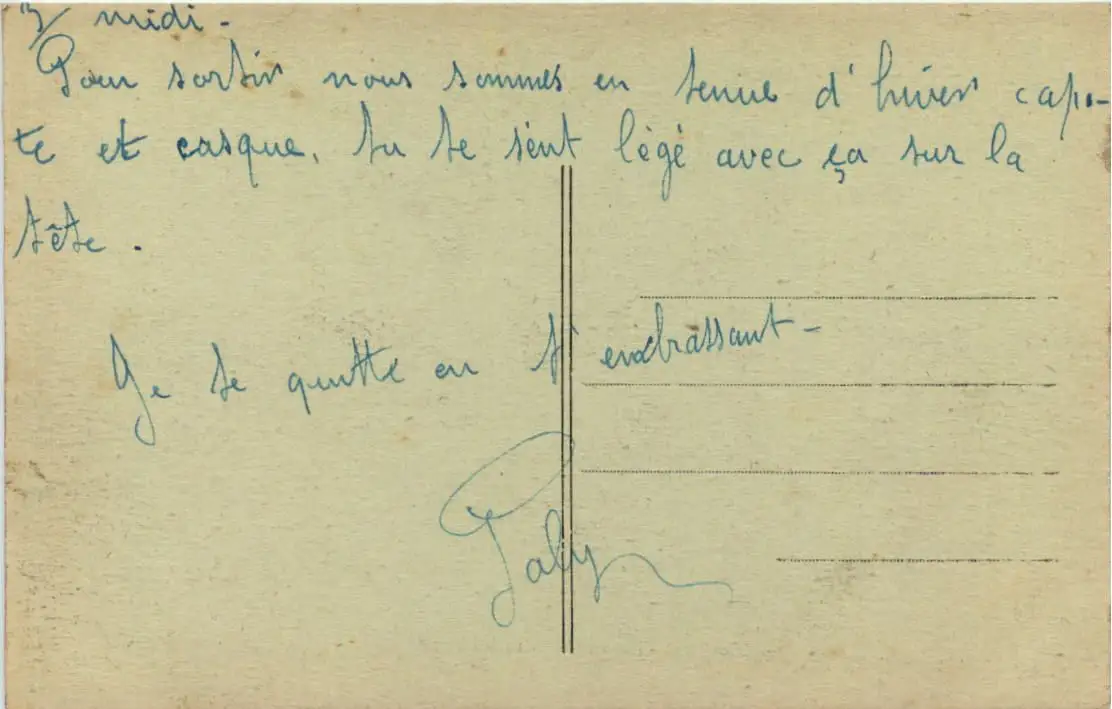 midi -
Pour sortir nous sommes en tenue d'hiver capo-
te et casque. tu te sent légé avec ça sur la
tête.
Je te quitte en t'embrassant -
Paly